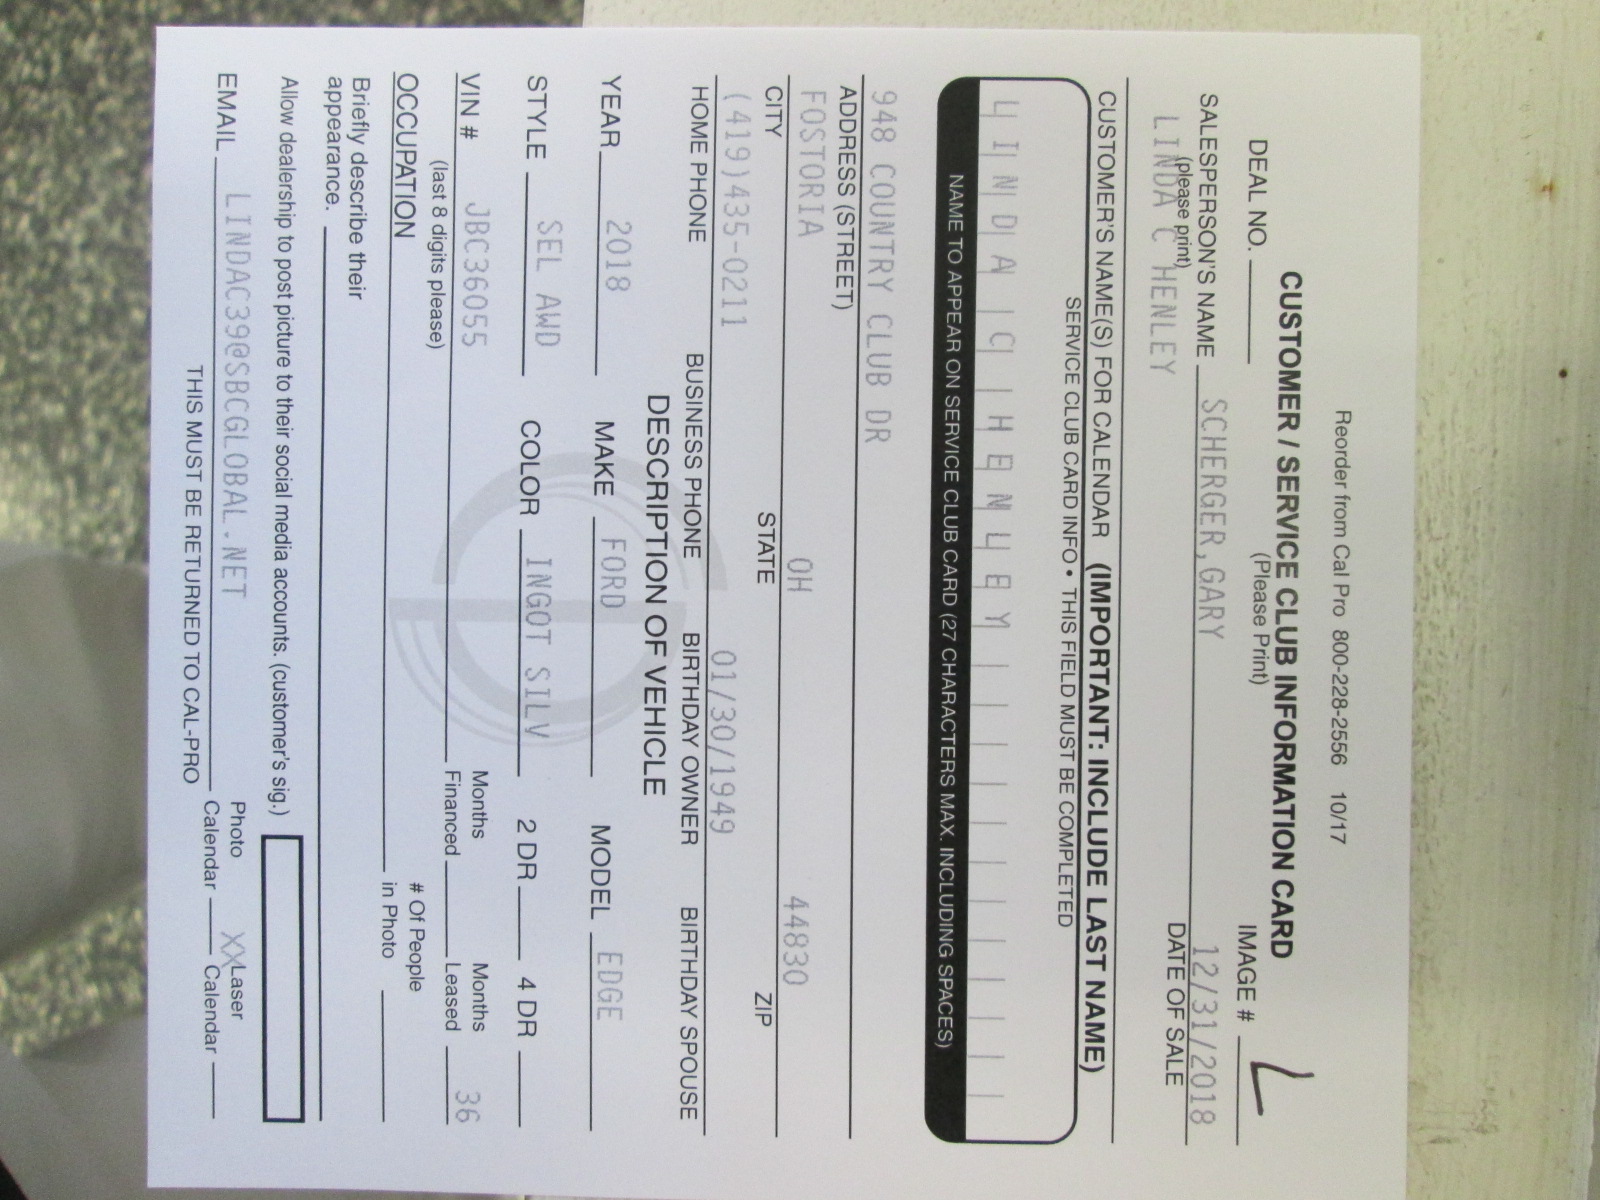 Reorder from Cal Pro 800-228-2556 10/17
CUSTOMER / SERVICE CLUB INFORMATION CARD
(Please Print)
DEAL NO. IMAGE #
SCHERGER,GARY 12/31/2018
SALESPERSON'S NAME DATE OF SALE
(please print)
LINDA C HENLEY
CUSTOMER'S NAME(S) FOR CALENDAR (IMPORTANT: INCLUDE LAST NAME)
SERVICE CLUB CARD INFO • THIS FIELD MUST BE COMPLETED
LINDA C HENLEY
NAME TO APPEAR ON SERVICE CLUB CARD (27 CHARACTERS MAX. INCLUDING SPACES)
948 COUNTRY CLUB DR
ADDRESS (STREET)
FOSTORIA OH 44830
CITY STATE ZIP
(419)435-0211 01/30/1949
HOME PHONE BUSINESS PHONE BIRTHDAY OWNER BIRTHDAY SPOUSE
DESCRIPTION OF VEHICLE
YEAR 2018 MAKE FORD MODEL EDGE
STYLE SEL AWD COLOR INGOT SILV 2 DR 4 DR
VIN # JBC36055 Months Financed Months Leased 36
(last 8 digits please)
OCCUPATION # Of People in Photo
Briefly describe their
appearance.
Allow dealership to post picture to their social media accounts. (customer's sig.)
EMAIL LINDAC39@SBCGLOBAL.NET Photo Calendar XX Laser Calendar
THIS MUST BE RETURNED TO CAL-PRO